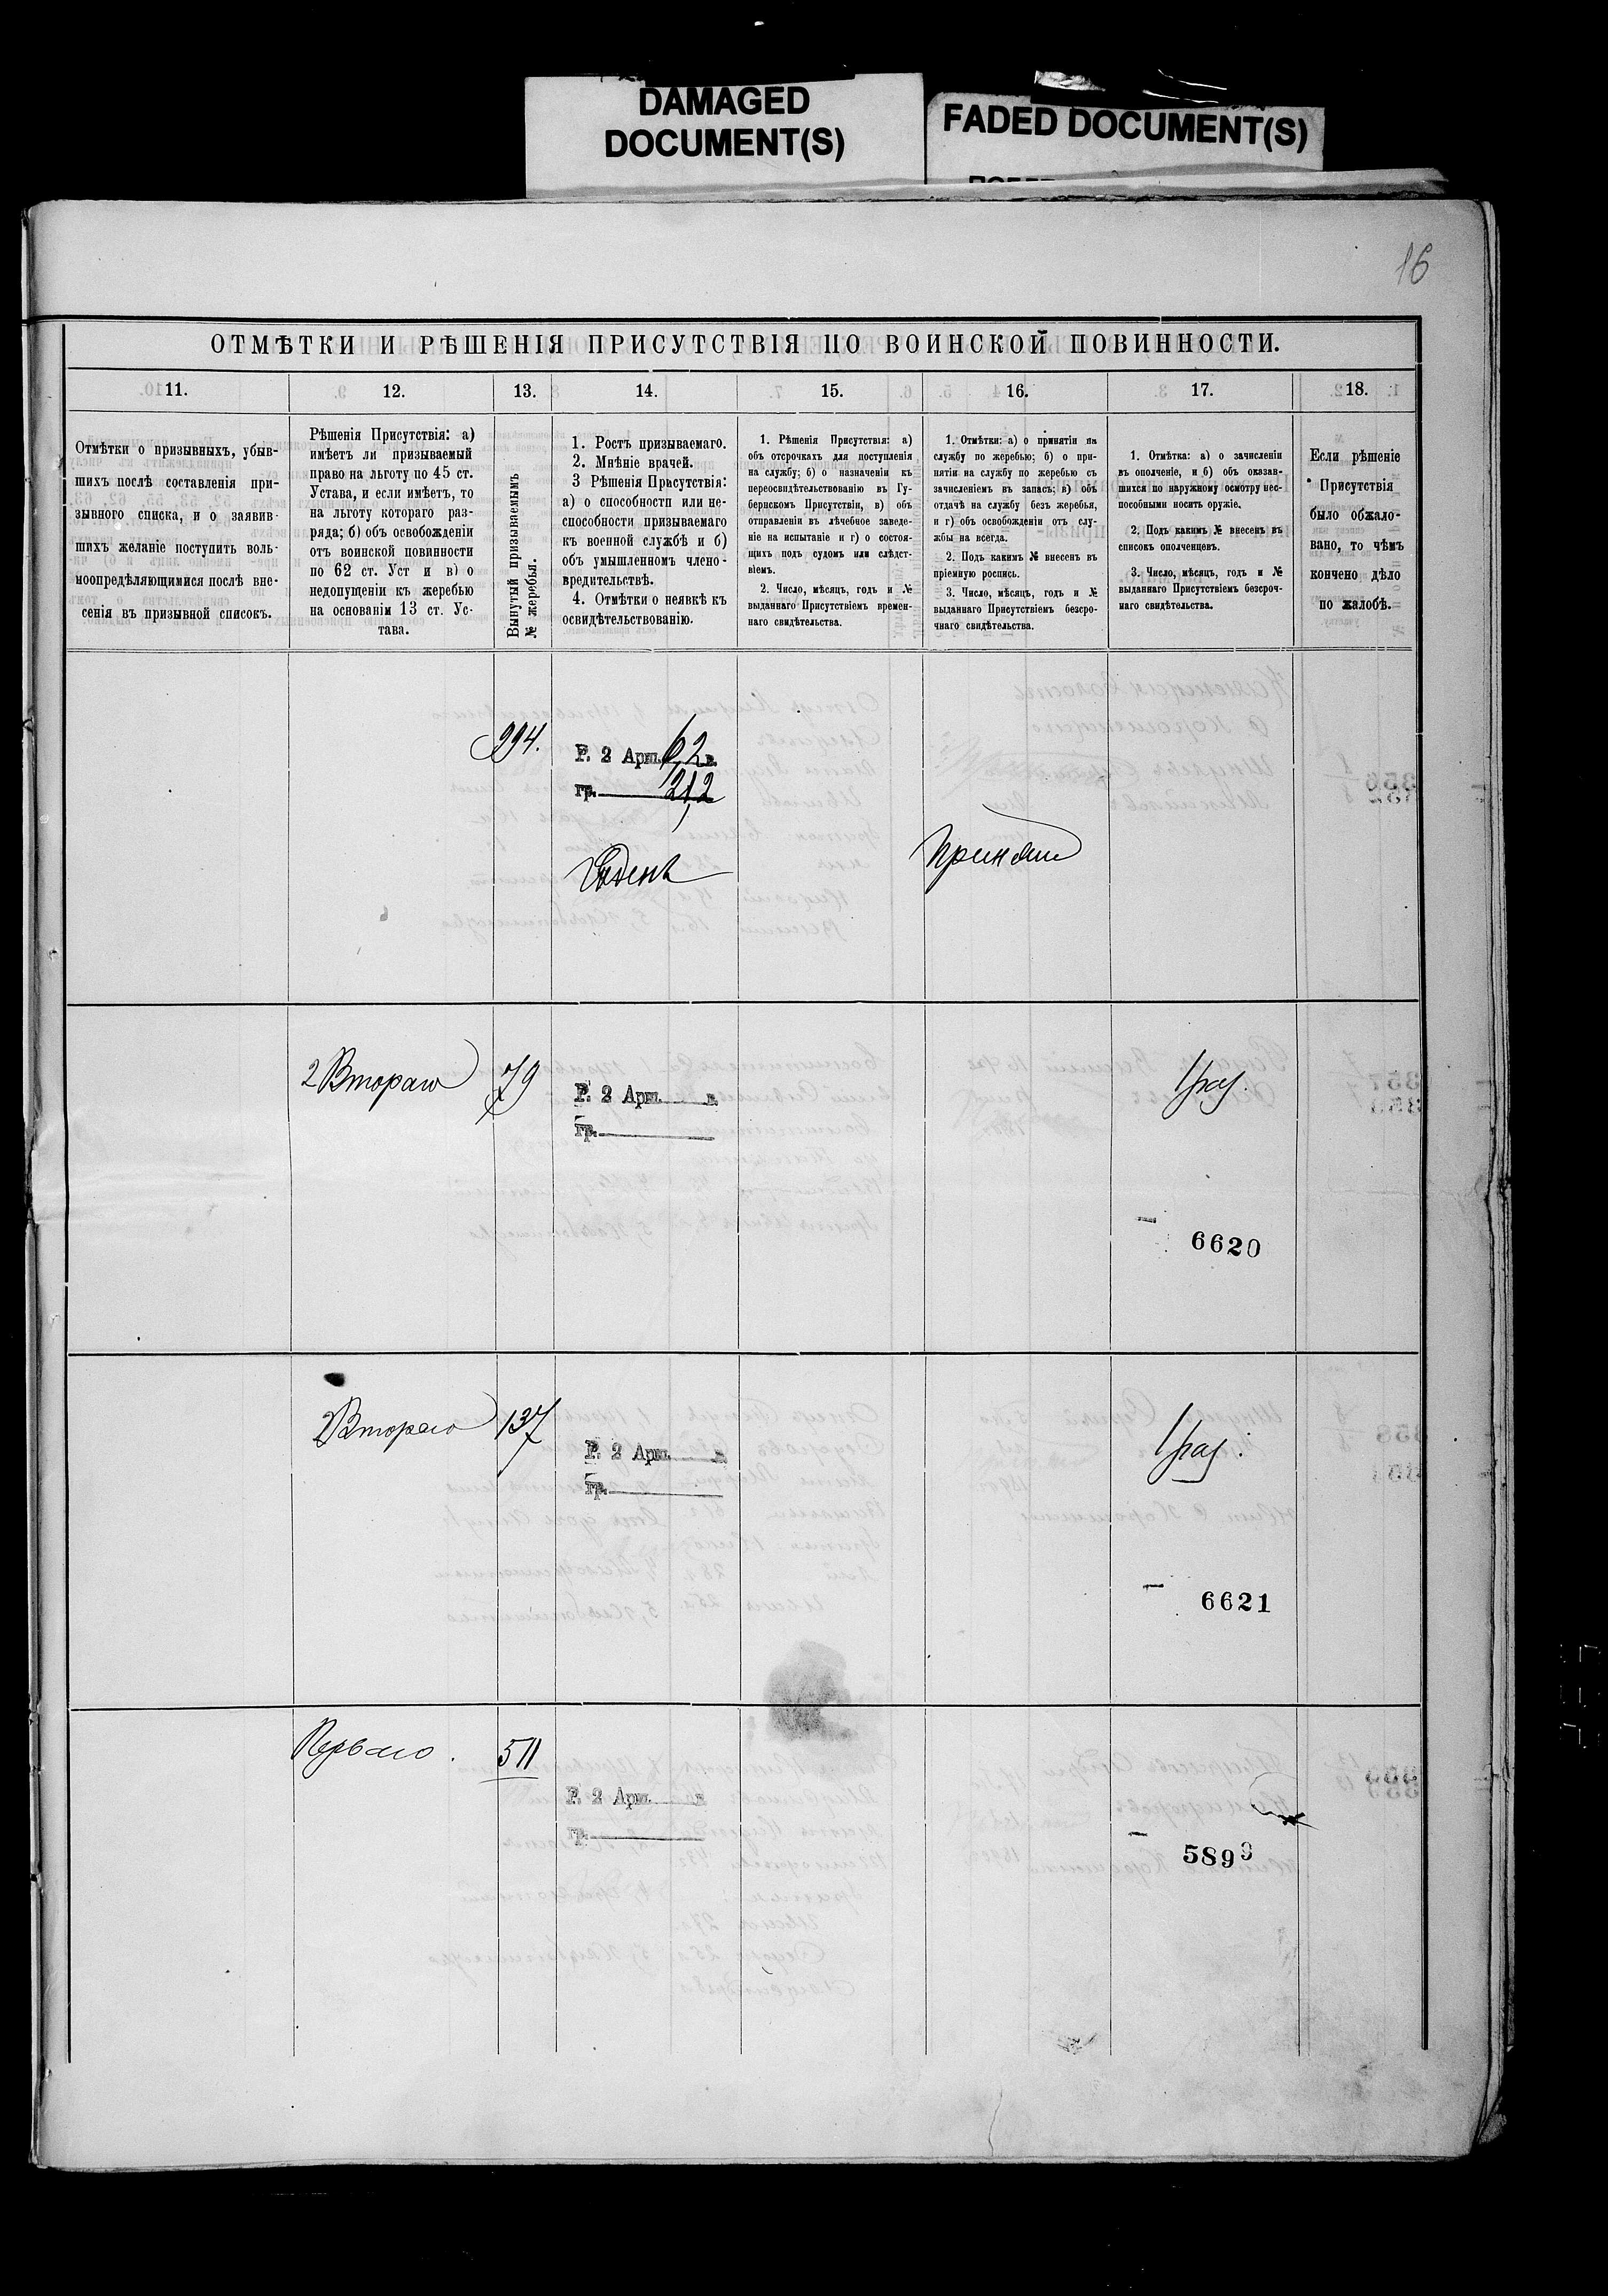 DAMAGED
DOCUMENT(S)
FADED DOCUMENT(S)
16
ОТМѢТКИ И РѢШЕНІЯ ПРИСУТСТВІЯ ПО ВОИНСКОЙ ПОВИННОСТИ.
11.
12.
13.
14.
15.
16.
17.
18.
Отмѣтки о призывныхъ, убыв-
шихъ послѣ составленія при-
зывного списка, и о заявив-
шихъ желаніе поступить воль-
ноопредѣляющимися послѣ вне-
сенія въ призывной списокъ.
Рѣшенія Присутствія: а)
имѣетъ ли призываемый
право на льготу по 45 ст.
Устава, и если имѣетъ, то
на льготу котораго раз-
ряда; б) объ освобожденіи
отъ воинской повинности
по 62 ст. Уст и в) о
недопущеніи къ жеребью
на основаніи 13 ст. Ус-
тава.
Вынутый призываемымъ
№ жеребья.
1. Ростъ призываемаго.
2. Мнѣніе врачей.
3 Рѣшенія Присутствія:
а) о способности или не-
способности призываемаго
къ военной службѣ и б)
объ умышленномъ члено-
вредительствѣ.
4. Отмѣтки о неявкѣ къ
освидѣтельствованію.
1. Рѣшенія Присутствія: а)
объ отсрочкахъ для поступленія
на службу; б) о назначеніи къ
переосвидѣтельствованію въ Гу-
бернскомъ Присутствіи, в) объ
отправленіи въ лѣчебное заведе-
ніе на испытаніе и г) о состоя-
щихъ подъ судомъ или слѣдст-
віемъ.
2. Число, мѣсяцъ, годъ и №
выданнаго Присутствіемъ времен-
наго свидѣтельства.
1. Отмѣтки: а) о принятіи на
службу по жеребью; б) о при-
нятіи на службу по жеребью съ
зачисленіемъ въ запасъ; в) объ
отдачѣ на службу безъ жеребья,
и г) объ освобожденіи отъ слу-
жбы на всегда.
2. Подъ какимъ № внесенъ въ
пріемную роспись.
3. Число, мѣсяцъ, годъ и №
выданнаго Присутствіемъ безсро-
чнаго свидѣтельства.
1. Отмѣтка: а) о зачисленіи
въ ополченіе, и б) объ оказав-
шихся по наружному осмотру нес-
пособными носить оружіе.
2. Подъ какимъ № внесенъ въ
списокъ ополченцевъ.
3. Число, мѣсяцъ, годъ и №
выданнаго Присутствіемъ безсроч-
наго свидѣтельства.
Если рѣшеніе
Присутствія
было обжало-
вано, то чѣмъ
кончено дѣло
по жалобѣ.
294.
Р. 2 Арш. 6,2 в.
гр. 21,2
Годенъ
Принятъ
2 Втораго
79
Р. 2 Арш. в.
гр.
1 раз.
6620
2 Втораго
137
Р. 2 Арш. в.
гр.
1 раз.
6621
Перваго.
511
Р. 2 Арш. в.
гр.
5899